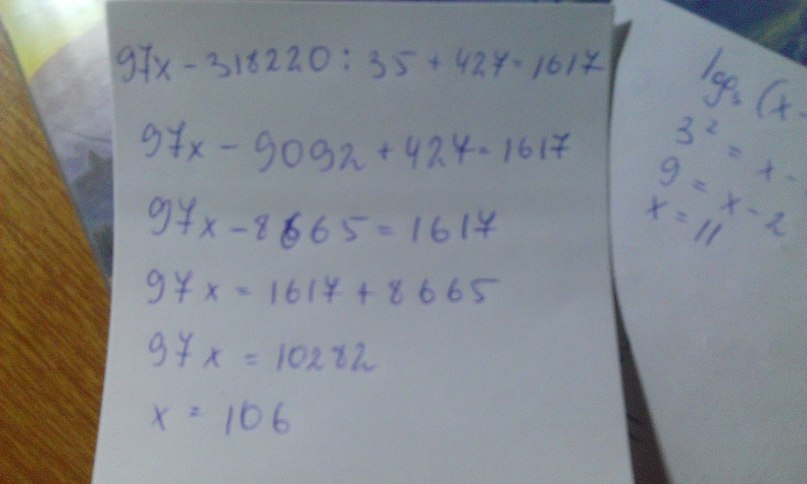 97x - 318220 : 35 + 427 = 1617
97x - 9092 + 427 = 1617
97x - 8665 = 1617
97x = 1617 + 8665
97x = 10282
x = 106
log₃ (x -
3² = x -
9 = x - 2
x = 11